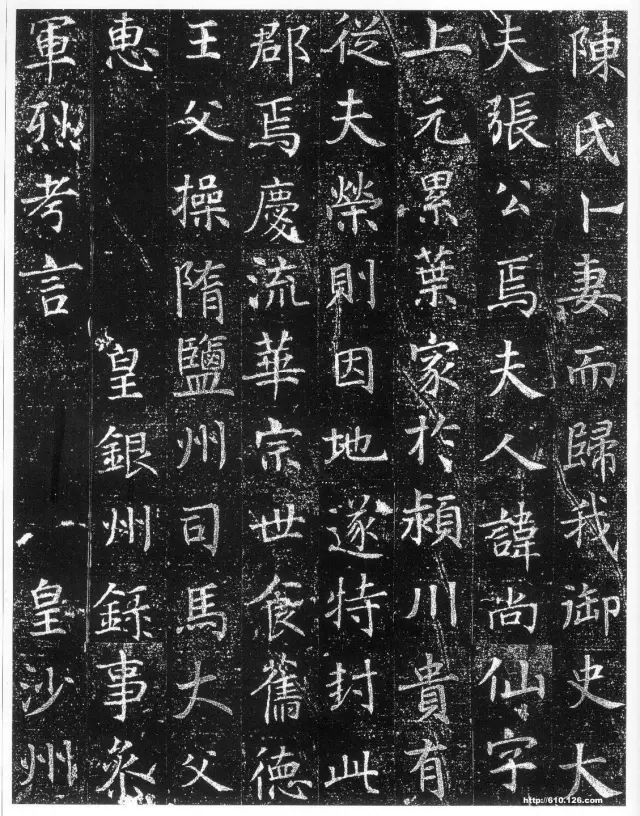 陳氏卜妻而歸我御史大
夫張公焉夫人諱尚仙字
上元累葉家於潁川貴有
從夫榮則因地遂特封此
郡焉慶流華宗世食舊德
王父操隋鹽州司馬大父
惠 皇銀州錄事參
軍烈考言 皇沙州
http://610.126.com